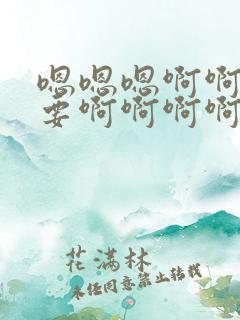 嗯嗯嗯啊啊
要啊啊啊啊
花满林
未经同意禁止转载